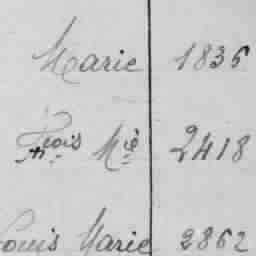 Marie 1836
Fçois Mie 2418
Louis Marie 2862